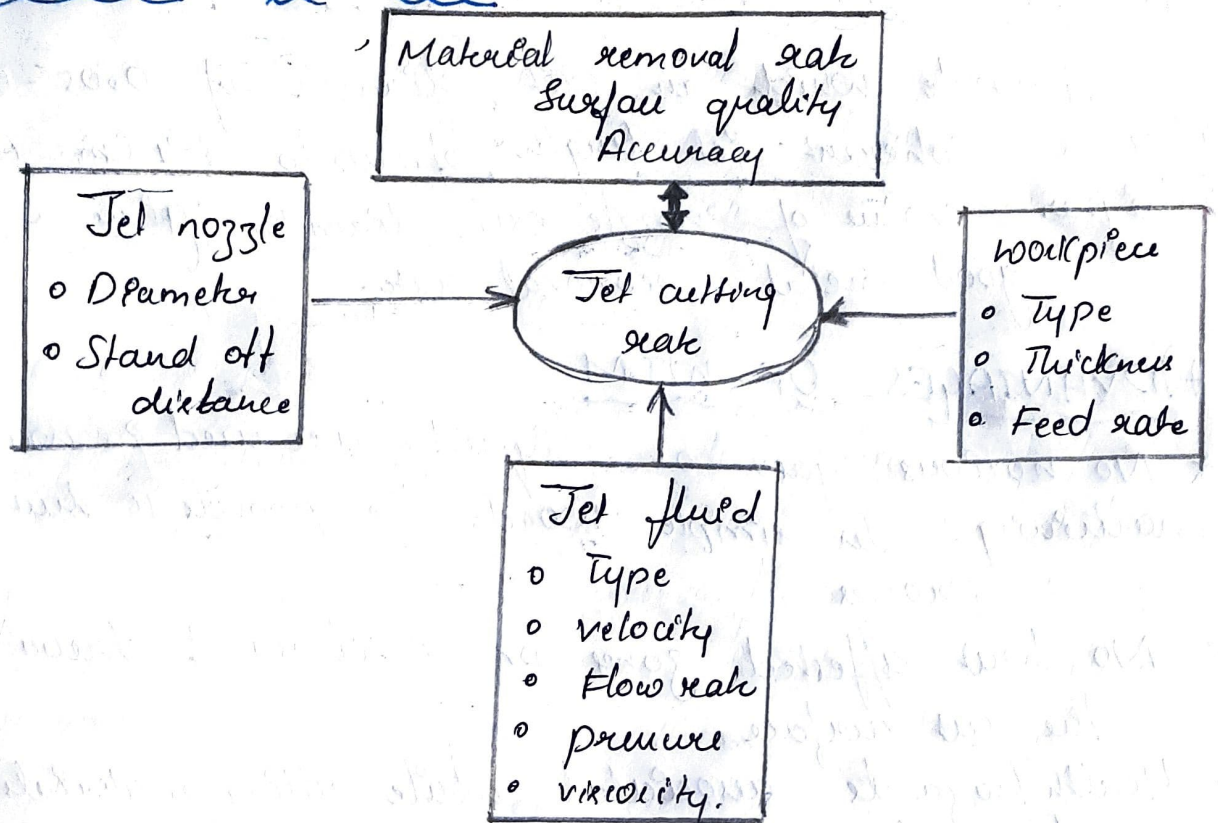 Material removal rate
Surface quality
Accuracy
Jet nozzle
o Diameter
o Stand off
distance
Jet cutting
rate
workpiece
o Type
o Thickness
o Feed rate
Jet fluid
o Type
o velocity
o Flow rate
o pressure
o viscosity.